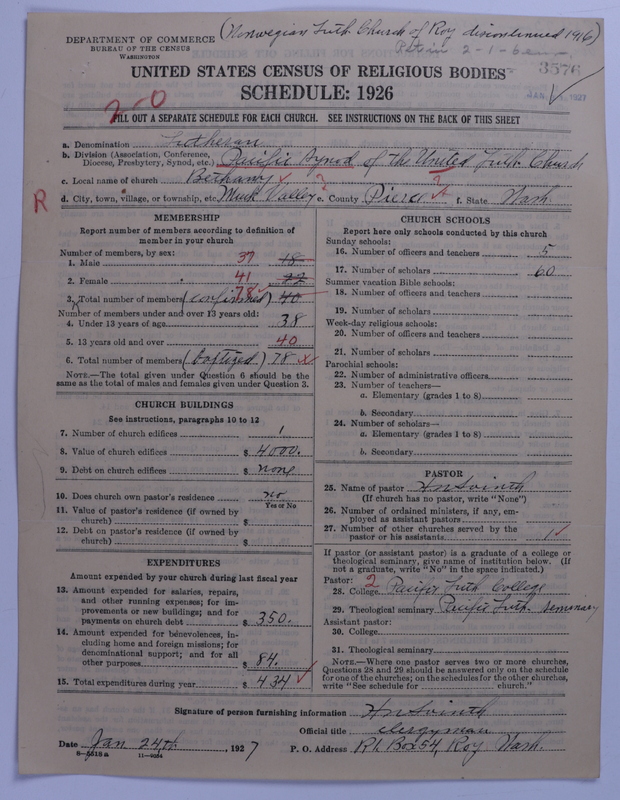 (Norwegian Luth Church of Roy discontinued 1916)
DEPARTMENT OF COMMERCE
BUREAU OF THE CENSUS
WASHINGTON
3576
JAN 1927
UNITED STATES CENSUS OF RELIGIOUS BODIES
SCHEDULE: 1926
2-0
FILL OUT A SEPARATE SCHEDULE FOR EACH CHURCH. SEE INSTRUCTIONS ON THE BACK OF THIS SHEET
a. Denomination Lutheran
b. Division (Association, Conference, Diocese, Presbytery, Synod, etc.) Pacific Synod of the United Luth. Church
c. Local name of church Bethany
R
d. City, town, village, or township, etc. Muck Valley e. County Pierce f. State Wash.
MEMBERSHIP
Report number of members according to definition of
member in your church
Number of members by sex:
1. Male 37 18
2. Female 41 22
3. Total number of members (confirmed) 78 40
Number of members under and over 13 years old:
4. Under 13 years of age 38
5. 13 years old and over 40
6. Total number of members (baptized) 78
NOTE.—The total given under Question 6 should be the
same as the total of males and females given under Question 3.
CHURCH BUILDINGS
See instructions, paragraphs 10 to 12
7. Number of church edifices 1
8. Value of church edifices $ 4000.
9. Debt on church edifices $ none
10. Does church own pastor's residence no
Yes or No
11. Value of pastor's residence (if owned by
church) $
12. Debt on pastor's residence (if owned by
church) $
EXPENDITURES
Amount expended by your church during last fiscal year
13. Amount expended for salaries, repairs,
and other running expenses; for im-
provements or new buildings; and for
payments on church debt $ 350.
14. Amount expended for benevolences, in-
cluding home and foreign missions; for
denominational support; and for all
other purposes $ 84.
15. Total expenditures during year $ 434
CHURCH SCHOOLS
Report here only schools conducted by this church
Sunday schools:
16. Number of officers and teachers 5
17. Number of scholars 60
Summer vacation Bible schools:
18. Number of officers and teachers
19. Number of scholars
Week-day religious schools:
20. Number of officers and teachers
21. Number of scholars
Parochial schools:
22. Number of administrative officers
23. Number of teachers—
a. Elementary (grades 1 to 8)
b. Secondary
24. Number of scholars—
a. Elementary (grades 1 to 8)
b. Secondary
PASTOR
25. Name of pastor H N Svinth
(If church has no pastor, write "None")
26. Number of ordained ministers, if any, em-
ployed as assistant pastors
27. Number of other churches served by the
pastor or his assistants 1
If pastor (or assistant pastor) is a graduate of a college or
theological seminary, give name of institution below. (If
not a graduate, write "No" in the space indicated.)
Pastor: 2
28. College Pacific Luth College
29. Theological seminary Pacific Luth. Seminary
Assistant pastor:
30. College
31. Theological seminary
NOTE.—Where one pastor serves two or more churches,
Questions 28 and 29 should be answered only on the schedule
for one of the churches; on the schedules for the other churches,
write "See schedule for church."
Signature of person furnishing information H N Svinth
Official title clergyman
Date Jan 24th, 1927 P. O. Address R1, Box 54, Roy Wash.
8-5518a 11-9034